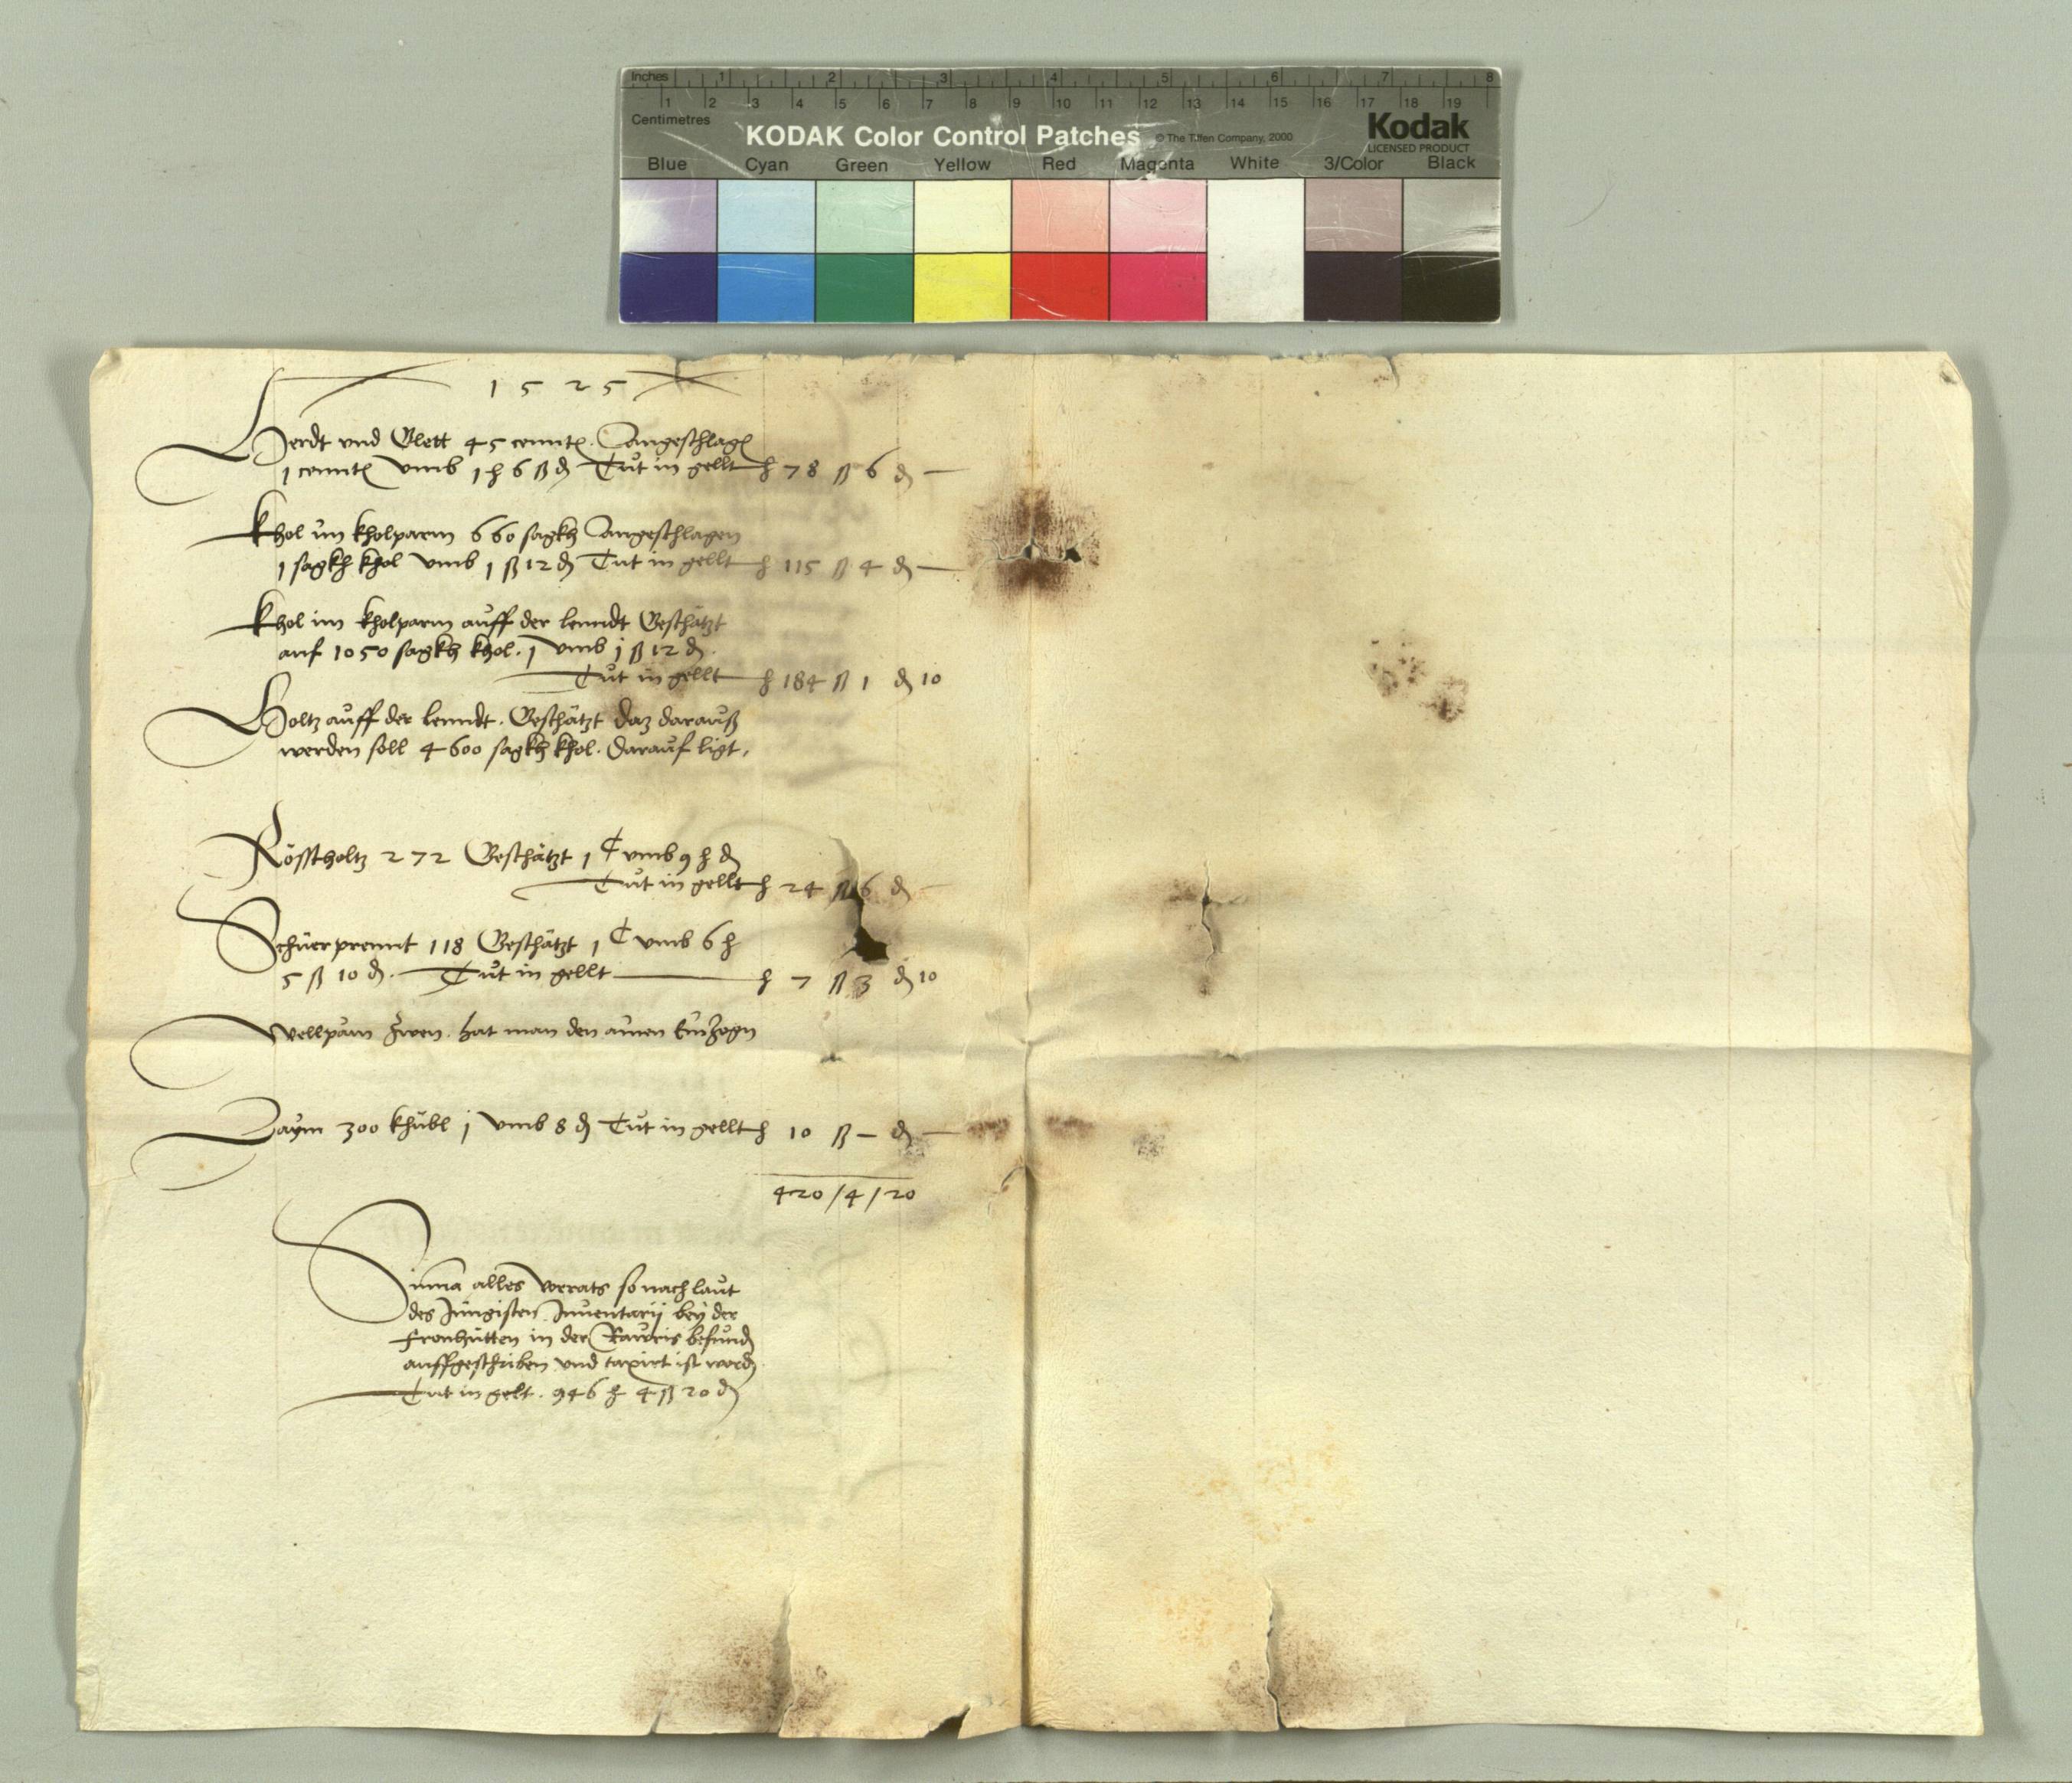 Inches 1 2 3 4 5 6 7 8
1 2 3 4 5 6 7 8 9 10 11 12 13 14 15 16 17 18 19
Centimetres
KODAK Color Control Patches © The Tiffen Company, 2000 Kodak
LICENSED PRODUCT
Blue Cyan Green Yellow Red Magenta White 3/Color Black
1525
Herdt vnd Glett 45 cennt. Angeschlag
1 cennt vmb 1 ℔ 6 ß ₰ Tůt in gellt ℔ 78 ß 6 ₰ —
Khol im kholparm 660 sagkh Angeschlagen
1 sagkh khol vmb 1 ß 12 ₰ Tut in gellt ℔ 115 ß 4 ₰ —
Khol im kholparm auff der lenndt Geschätzt
auf 1050 sagkh khol. 1 vmb 1 ß 12 ₰.
Tůt in gellt ℔ 184 ß 1 ₰ 10
Holtz auff der lenndt. Geschätzt daz darauß
werden soll 4600 sagkh khol. darauf ligt.
Rösstholtz 272 Geschätzt 1 C vmb 9 ℔ ₰
Tůt in gellt ℔ 24 ß 6 ₰ —
Schüerprennt 118 Geschätzt 1 C vmb 6 ℔
5 ß 10 ₰. Tůt in gellt ℔ 7 ß 3 ₰ 10
Wellpäm zwen. hat man den ainen Einzogn
Laym 300 khübl 1 vmb 8 ₰ Tůt in gellt ℔ 10 ß — ₰ —
420 / 4 / 20
Summa alles vorrats so nach laut
des Jüngisten Inuentarij bey der
Fronhütten in der Rawris befund
auffgeschriben vnd taxirt ist word
Tut in gelt. 946 ℔ 4 ß 20 ₰